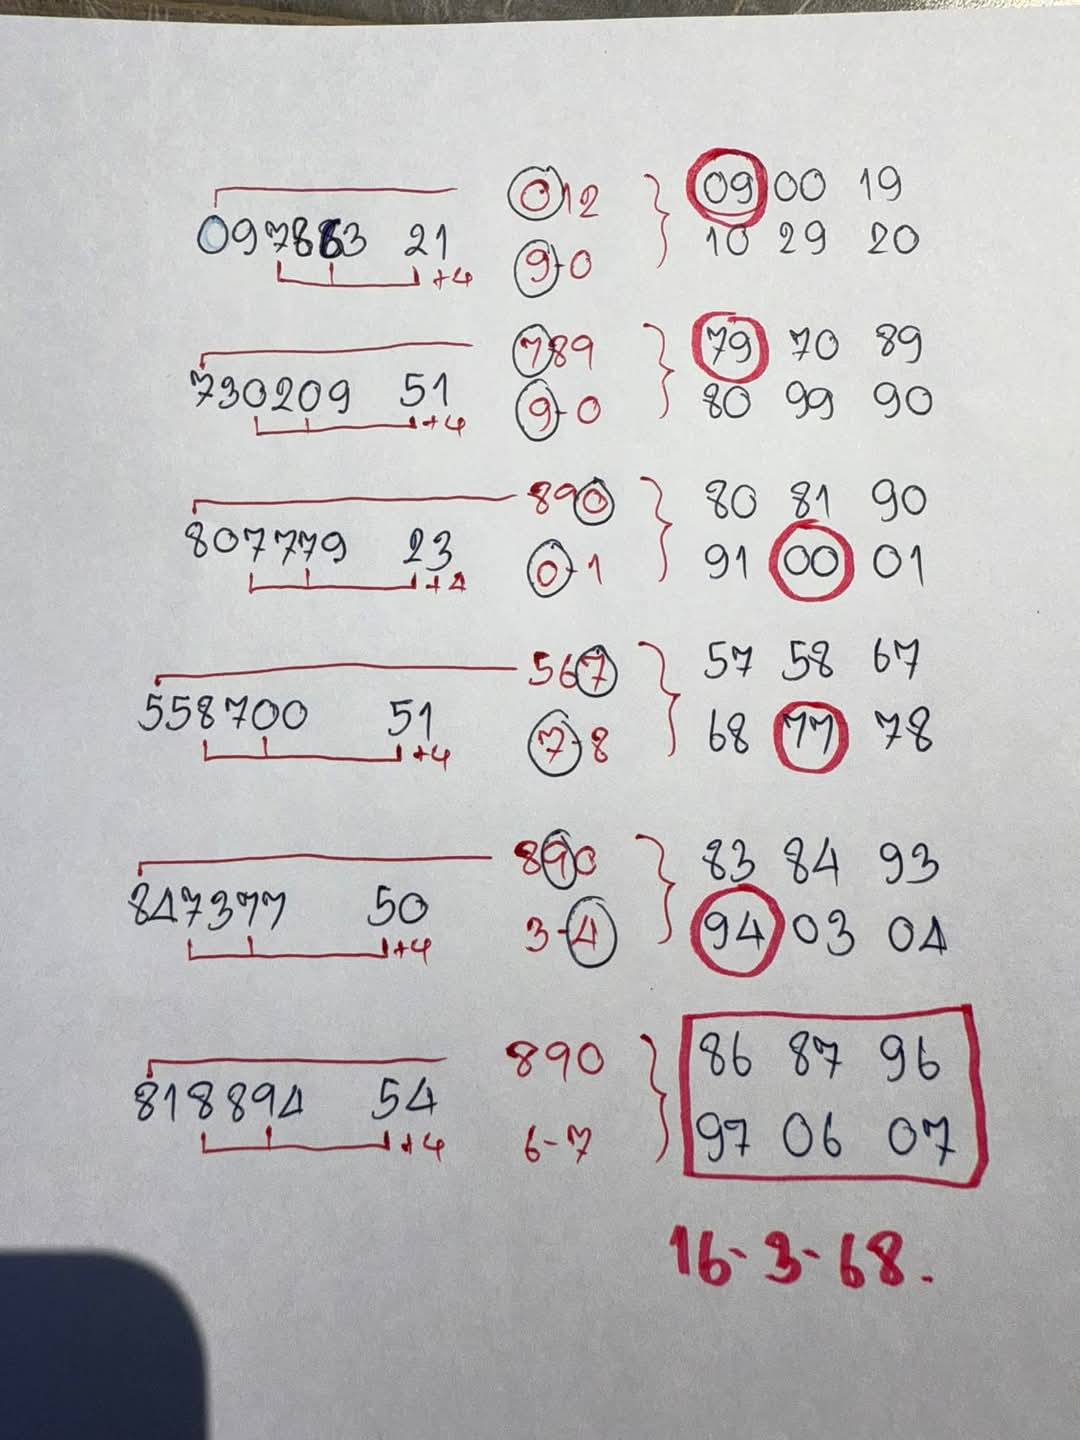 012 09 00 19
097883 21 10 29 20
+4 9-0
789 79 70 89
730209 51 9-0 80 99 90
+4
890 80 81 90
807779 23 0-1 91 00 01
+4
567 57 58 67
558700 51 7-8 68 77 78
+4
890 83 84 93
847377 50 3-4 94 03 04
+4
890 86 87 96
818894 54 6-7 97 06 07
+4
16-3-68.